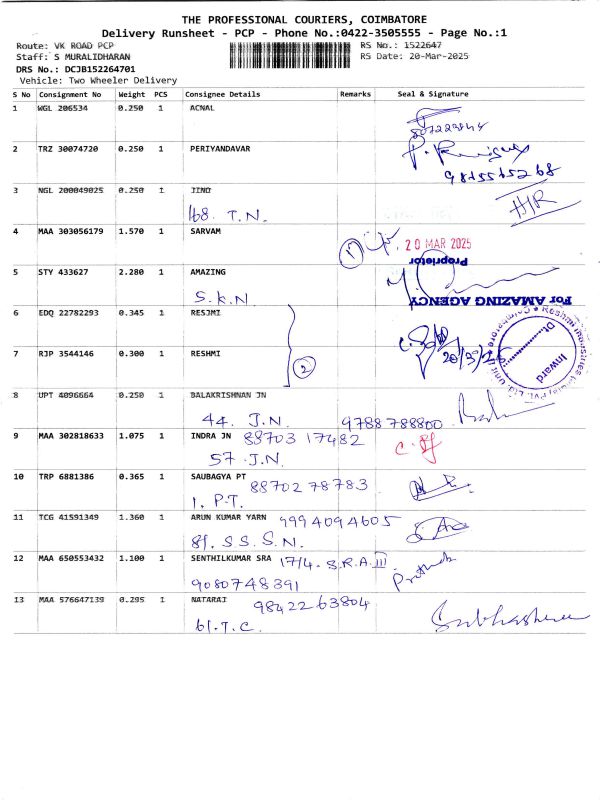 THE PROFESSIONAL COURIERS, COIMBATORE
Delivery Runsheet - PCP - Phone No.:0422-3505555 - Page No.:1
Route: VK ROAD PCP RS No.: 1522647
Staff: S MURALIDHARAN RS Date: 20-Mar-2025
DRS No.: DCJB152264701
Vehicle: Two Wheeler Delivery
S No Consignment No Weight PCS Consignee Details Remarks Seal & Signature
1 WGL 206534 0.250 1 ACNAL
2 TRZ 30074720 0.250 1 PERIYANDAVAR
3 NGL 200049025 0.250 1
168. T.N. H/R
4 MAA 303056179 1.570 1 SARVAM
1 20 MAR 2025
Proprietor
5 STY 433627 2.280 1 AMAZING
S.K.N. For AMAZING AGENCY
6 EDQ 22782293 0.345 1 RESJMI
20/3/25
Inward
7 RJP 3544146 0.300 1 RESHMI
2
8 UPT 4096664 0.250 1 BALAKRISHNAN JN
44. J.N. 9788 788800
9 MAA 302818633 1.075 1 INDRA JN 88703 17482
57 J.N.
10 TRP 6881386 0.365 1 SAUBAGYA PT 88702 78783
1, P.T.
11 TCG 41591349 1.360 1 ARUN KUMAR YARN 9994094605
81. S S. S.N.
12 MAA 650553432 1.100 1 SENTHILKUMAR SRA 17/4. S.R.A III
9080748391
13 MAA 576647139 0.295 1 NATARAJ 9842263804
61.T.C.